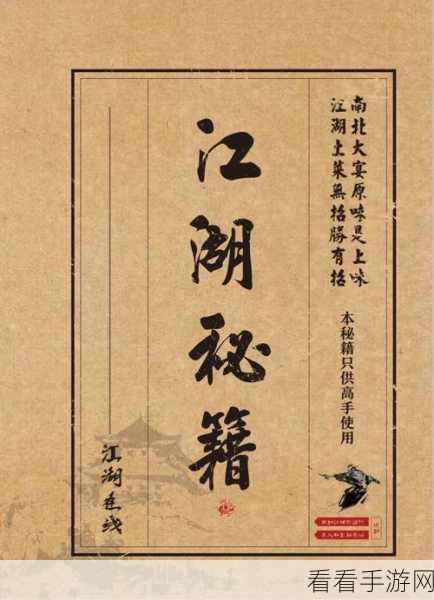 南北大宴原味是上味
江湖土菜無招勝有招
本秘籍只供高手使用
江湖秘籍
江湖在线
看看手游网